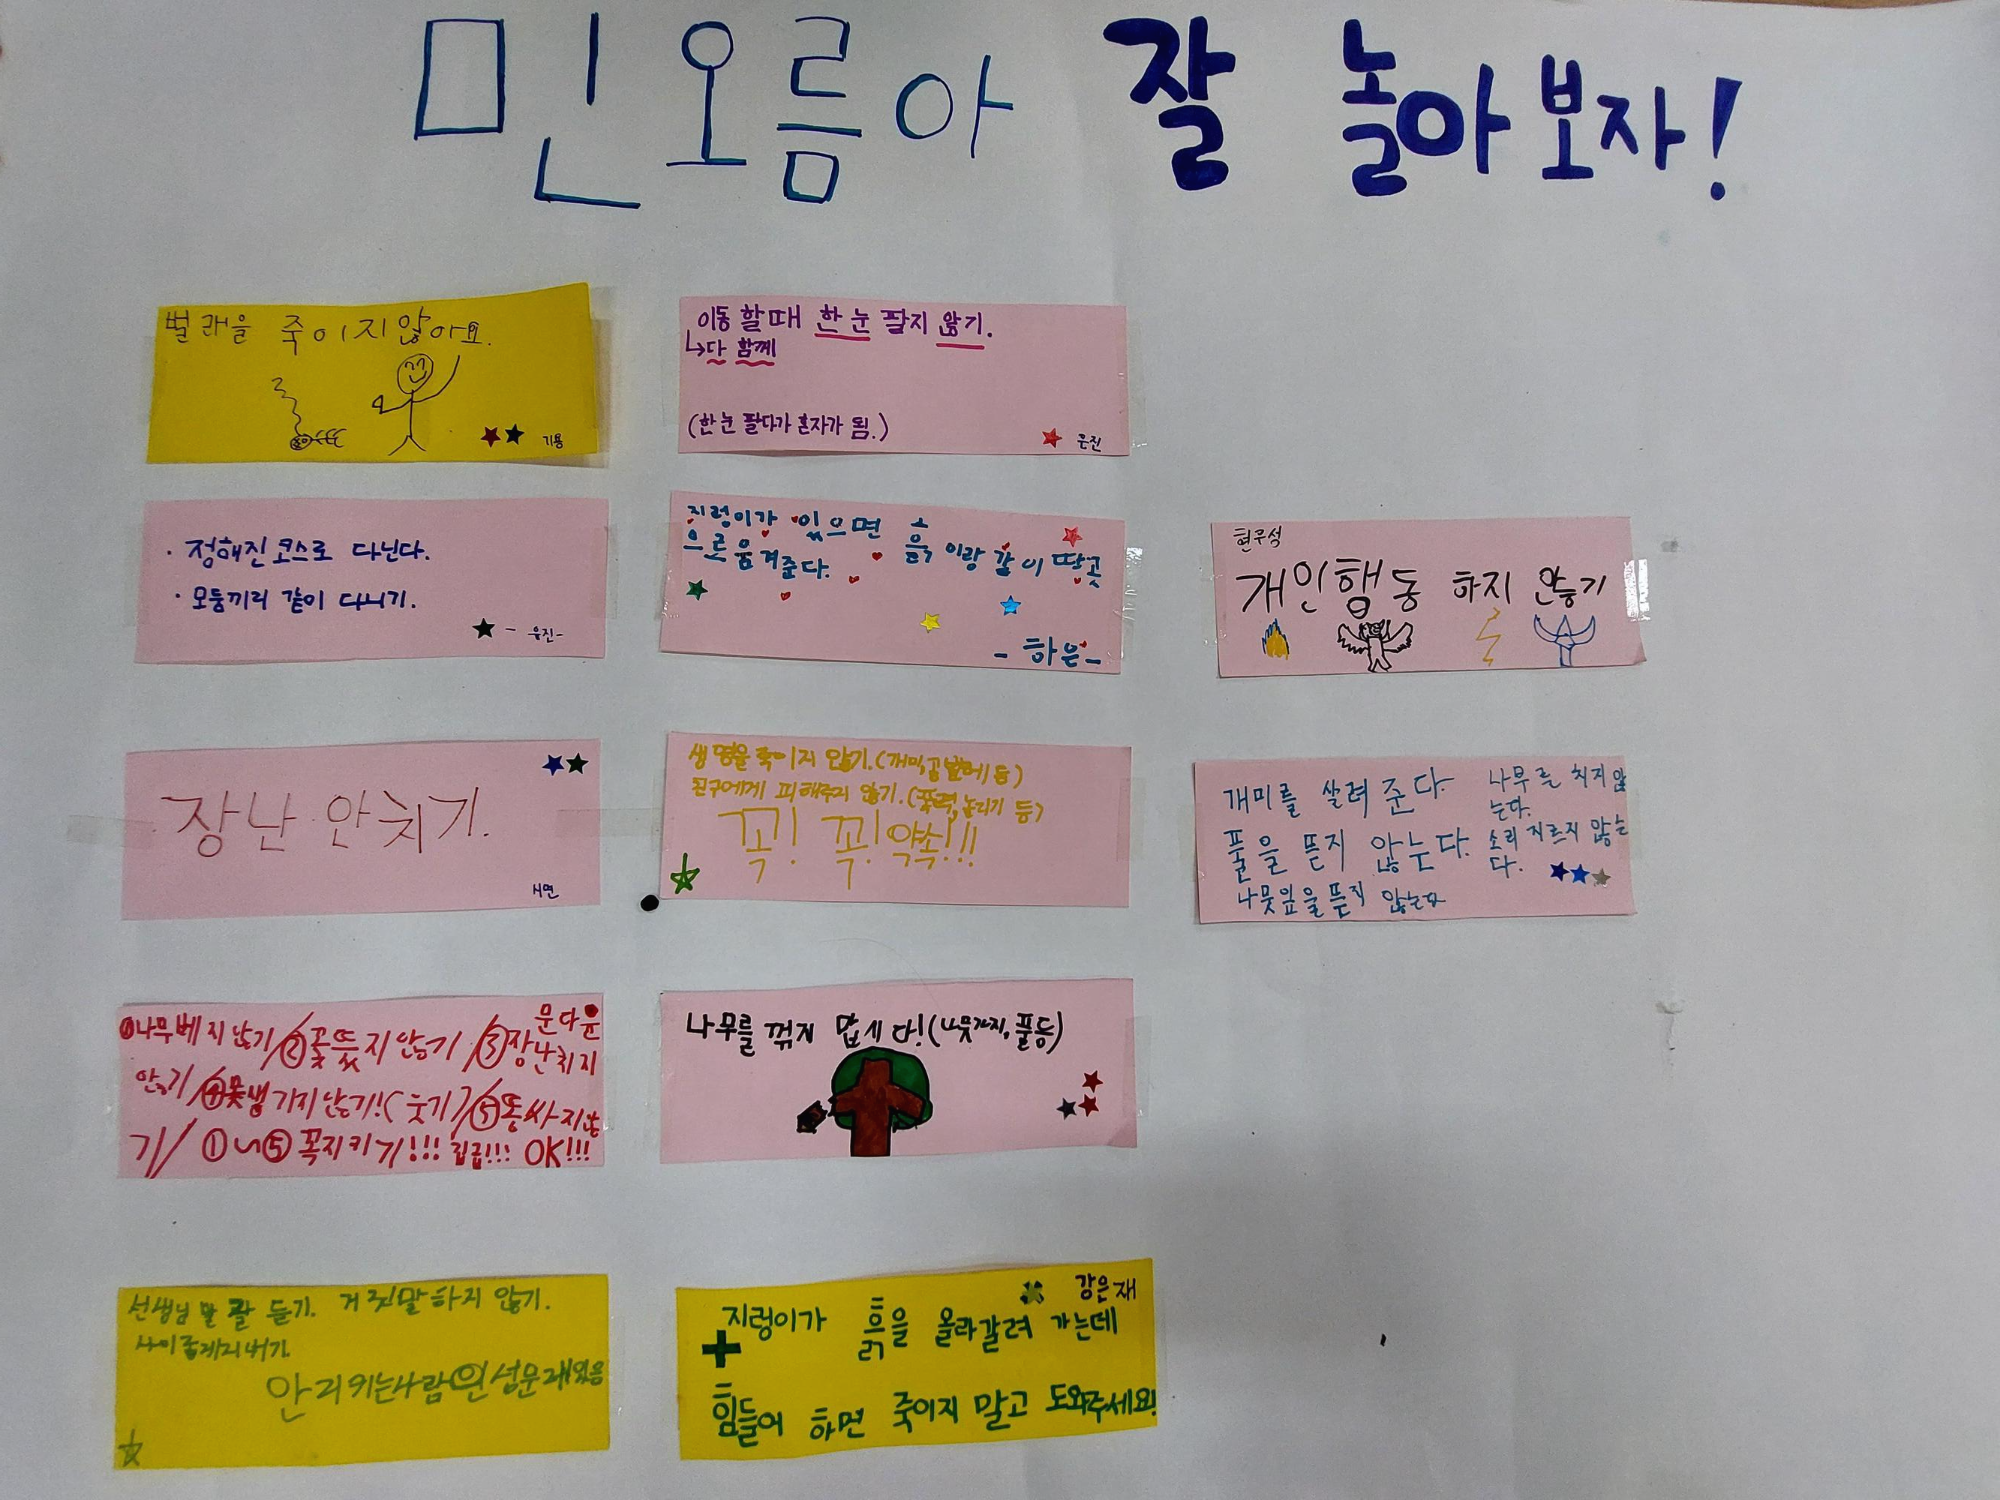 민오름아 잘 놀아보자!
벌래을 죽이지않아요.
기용
이동 할때 한눈 팔지 않기.
↳다 함께
(한눈 팔다가 혼자가 됨.)
은진
· 정해진 코스로 다닌다.
· 모둠끼리 같이 다니기.
지렁이가 있으면 흙이랑 같이 딴곳
으로 옮겨준다.
- 하은 -
현무성
개인행동 하지 않기
장난 안치기.
생명을 죽이지 않기.(개미,곰벌레 등)
친구에게 피해주지 않기.(폭력,놀리기 등)
꼭! 꼭! 약속!!!
개미를 살려 준다.
풀을 뜯지 않는다.
나뭇잎을 뜯지 않는다
나무를 치지 않
는다.
소리 지르지 않는
다.
문다윤
①나무베지 않기/②꽃뜼지 않기/③장난치지
않기/④못생기지 않기!(웃기)/⑤똥싸지않
기/ ①~⑤ 꼭지키기!!! OK!!!
나무를 꺾게 맙시다!(나뭇가지,풀등)
선생님 말 잘 듣기. 거짓말하지 않기.
사이좋게지내기.
안지키는사람 인성문재있음
강은재
지렁이가 흙을 올라갈려 가는데
힘들어 하면 죽이지 말고 도와주세요!